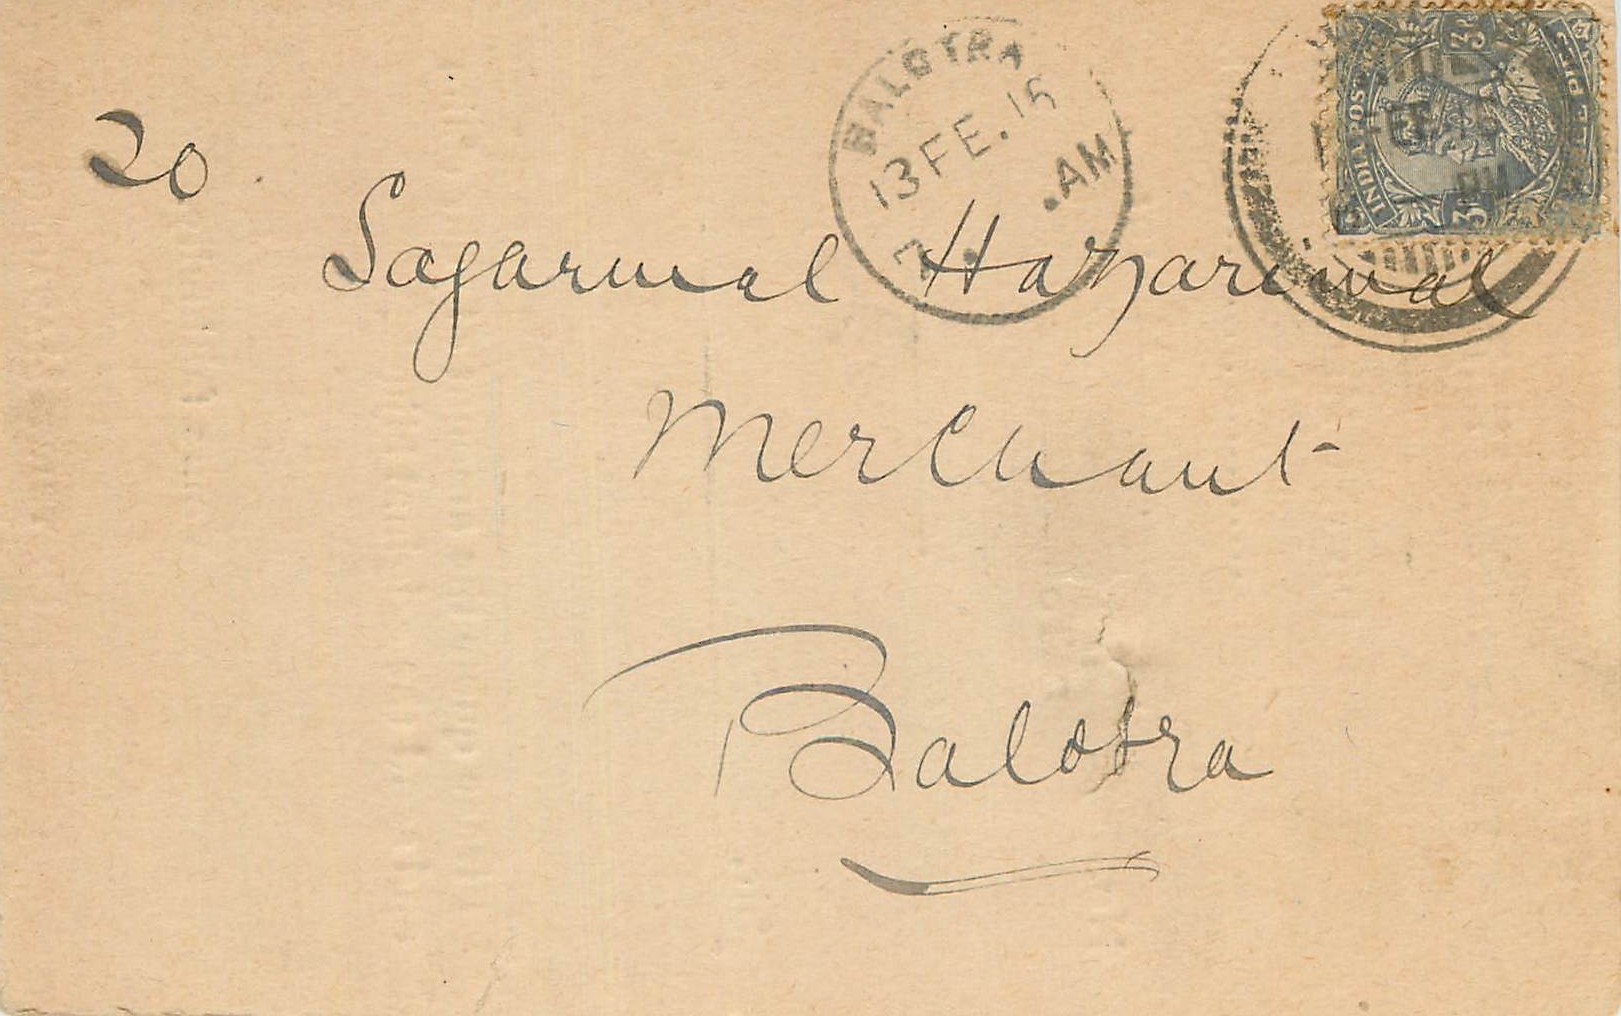 BALOTRA
13 FE. 15
7 . .AM
INDIA POSTAGE
3 PS 3 PS
20
Sagarmal Hazarimal
Merchant
Balotra